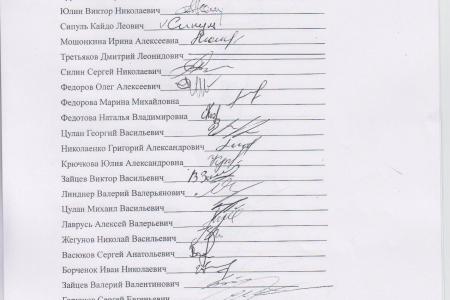 Юлин Виктор Николаевич
Сипуль Кайдо Леович
Мошонкина Ирина Алексеевна
Третьяков Дмитрий Леонидович
Силин Сергей Николаевич
Федоров Олег Алексеевич
Федорова Марина Михайловна
Федотова Наталья Владимировна
Цулан Георгий Васильевич
Николаенко Григорий Александрович
Крючкова Юлия Александровна
Зайцев Виктор Васильевич
Линднер Валерий Валерьянович
Цулан Михаил Васильевич
Лаврусь Алексей Валерьевич
Жегунов Николай Васильевич
Васюков Сергей Анатольевич
Борченок Иван Николаевич
Зайцев Валерий Валентинович
Сергей Евгеньевич